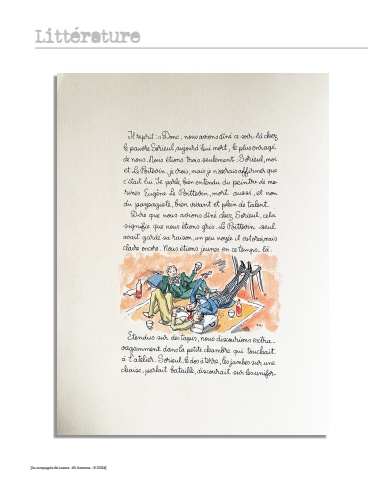 Littérature
Il reprit : « Donc, nous avions dîné ce soir-là chez
le pauvre Sorieul, aujourd'hui mort, le plus enragé
de nous. Nous étions trois seulement : Sorieul, moi
et Le Poittevin, je crois, mais je n'oserais affirmer que
c'était lui. Je parle, bien entendu du peintre de ma-
rines Eugène Le Poittevin, mort aussi, et non
du paysagiste, bien vivant et plein de talent.
Dire que nous avions dîné chez Sorieul, cela
signifie que nous étions gris. Le Poittevin seul
avait gardé sa raison, un peu noyée il est vrai, mais
claire encore. Nous étions jeunes en ce temps-là.
Étendus sur des tapis, nous discourions extra-
vagamment dans la petite chambre qui touchait
à l'atelier. Sorieul, le dos à terre, les jambes sur une
chaise, parlait bataille, discourait sur les unifor-